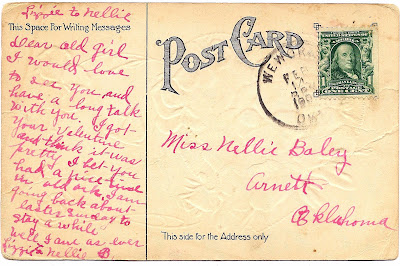 Lizzie to Nellie
This Space For Writing Messages
Dear old girl
I would love
to see you and
have a long talk
with you. I got
your valentine
and think it was
pretty I bet you
had a nice time
in old ark. I am
going back about
easter sunday to
stay a while
well I am as ever
Lizzie to Nellie B.
POST CARD
WEWOKA
OK
Miss Nellie Baley
Arnett
Oklahoma
This side for the Address only